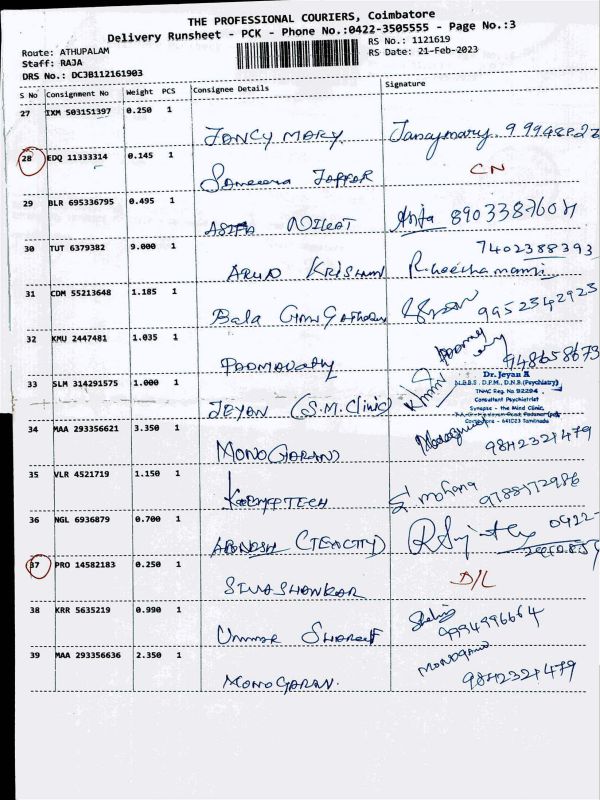 THE PROFESSIONAL COURIERS, Coimbatore
Delivery Runsheet - PCK - Phone No.:0422-3505555 - Page No.:3
Route: ATHUPALAM
RS No.: 1121619
Staff: RAJA
RS Date: 21-Feb-2023
DRS No.: DCJB112161903
S No Consignment No Weight PCS Consignee Details Signature
27 IXM 503151397 0.250 1
JANCY MARY
28 EDQ 11333314 0.145 1
CN
29 BLR 695336795 0.495 1
8903387604
30 TUT 6379382 9.000 1
7402388393
ARUN KRISHNAN
31 CDM 55213648 1.185 1
Bala 9952342923
32 KMU 2447481 1.035 1
33 SLM 314291575 1.000 1
Dr. Jeyan A
M.B.B.S., D.P.M., D.N.B.(Psychiatry)
TNMC Reg. No 92294
Consultant Psychiatrist
Synapse - the Mind Clinic,
Coimbatore - 641023 Tamilnadu
JEYAN (S.M. Clinic)
34 MAA 293356621 3.350 1
9842321479
MONOGARAN
35 VLR 4521719 1.150 1
mohana 9788172986
36 NGL 6936879 0.700 1
0422-
37 PRO 14582183 0.250 1
D/L
SIVASHANKAR
38 KRR 5635219 0.990 1
9994996664
Ummar Shareef
39 MAA 293356636 2.350 1
MONOGARAN
9842321479
MONOGARAN.